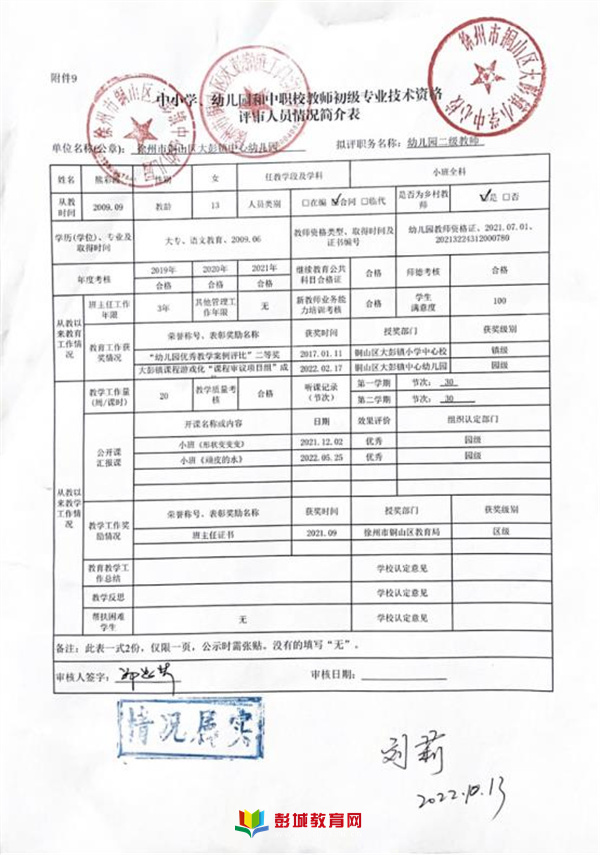 附件9
中小学、幼儿园和中职校教师初级专业技术资格
评审人员情况简介表
单位名称(公章): 徐州市铜山区大彭镇中心幼儿园 拟评职务名称: 幼儿园二级教师
姓名 熊彩 性别 女 任教学段及学科 小班全科
从教时间 2009.09 教龄 13 人员类别 □在编 ☑合同 □临代 是否为乡村教师 ☑是 □否
学历(学位)、专业及取得时间 大专、语文教育、2009.06 教师资格类型、取得时间及证书编号 幼儿园教师资格证、2021.07.01、20213224312000789
年度考核 2019年 2020年 2021年 继续教育公共科目合格证 合格 师德考核 合格
合格 合格 合格
从教以来教育工作情况 班主任工作年限 3年 其他管理工作年限 无 新教师业务能力培训考核 合格 学生满意度 100
教育工作获奖情况 荣誉称号、表彰奖励名称 获奖时间 授奖部门 获奖级别
“幼儿园优秀教学案例评比”二等奖 2017.01.11 铜山区大彭镇小学中心校 镇级
大彭镇课程游戏化“课程审议项目组”成 2022.02.17 铜山区大彭镇中心幼儿园 园级
从教以来教学工作情况 教学工作量(周/课时) 20 教学质量考核 合格 听课记录(节次) 第一学期 节次: 30
第二学期 节次: 30
公开课汇报课 开课名称或内容 日期 效果评价 组织认定部门
小班《形状变变变》 2021.12.02 优秀 园级
小班《顽皮的水》 2022.05.25 优秀 园级
教学工作奖励情况 荣誉称号、表彰奖励名称 获奖时间 授奖部门 获奖级别
班主任证书 2021.09 徐州市铜山区教育局 区级
教育教学工作总结 学校认定意见
教学反思 学校认定意见
帮扶困难学生 无 学校认定意见
备注: 此表一式2份, 仅限一页, 公示时需张贴。没有的填写“无”。
审核人签字: 审核日期:
情况属实
刘莉
2022.10.13
彭城教育网
徐州市铜山区大彭镇中心幼儿园
徐州市铜山区大彭镇小学中心校